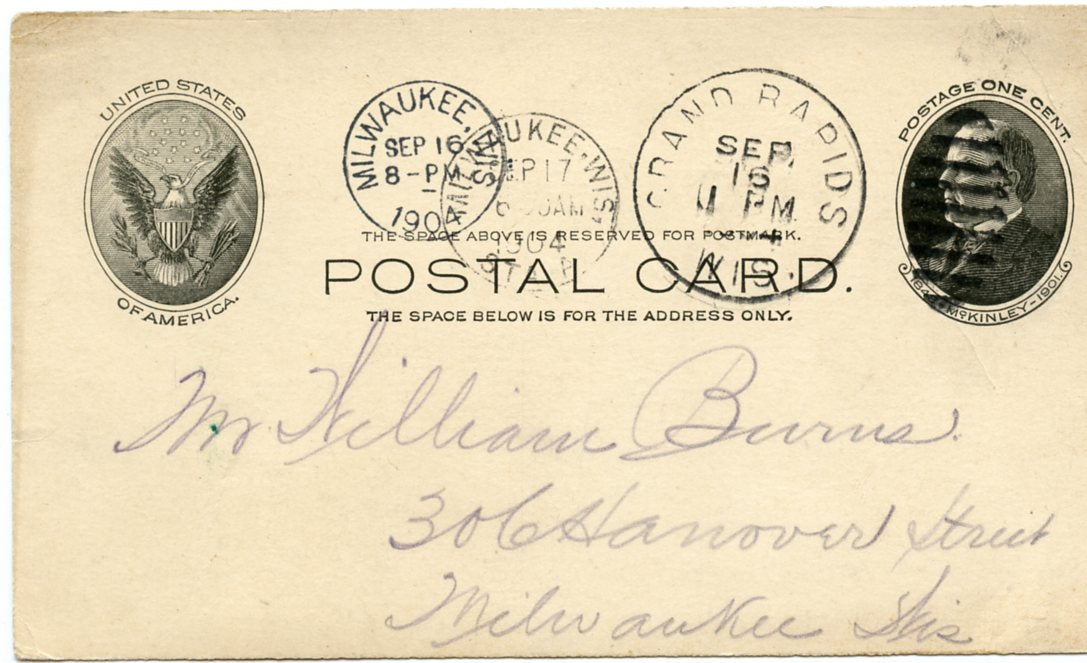 UNITED STATES
OF AMERICA.
MILWAUKEE, WIS
SEP 16
8-PM
1904
MILWAUKEE, WIS.
SEP 17
AM
1904
GRAND RAPIDS
SEP
16
PM
4
WIS.
POSTAGE ONE CENT.
McKINLEY-1901.
THE SPACE ABOVE IS RESERVED FOR POSTMARK.
POSTAL CARD.
THE SPACE BELOW IS FOR THE ADDRESS ONLY.
Mr William Burns.
306 Hanover Street
Milwaukee Wis